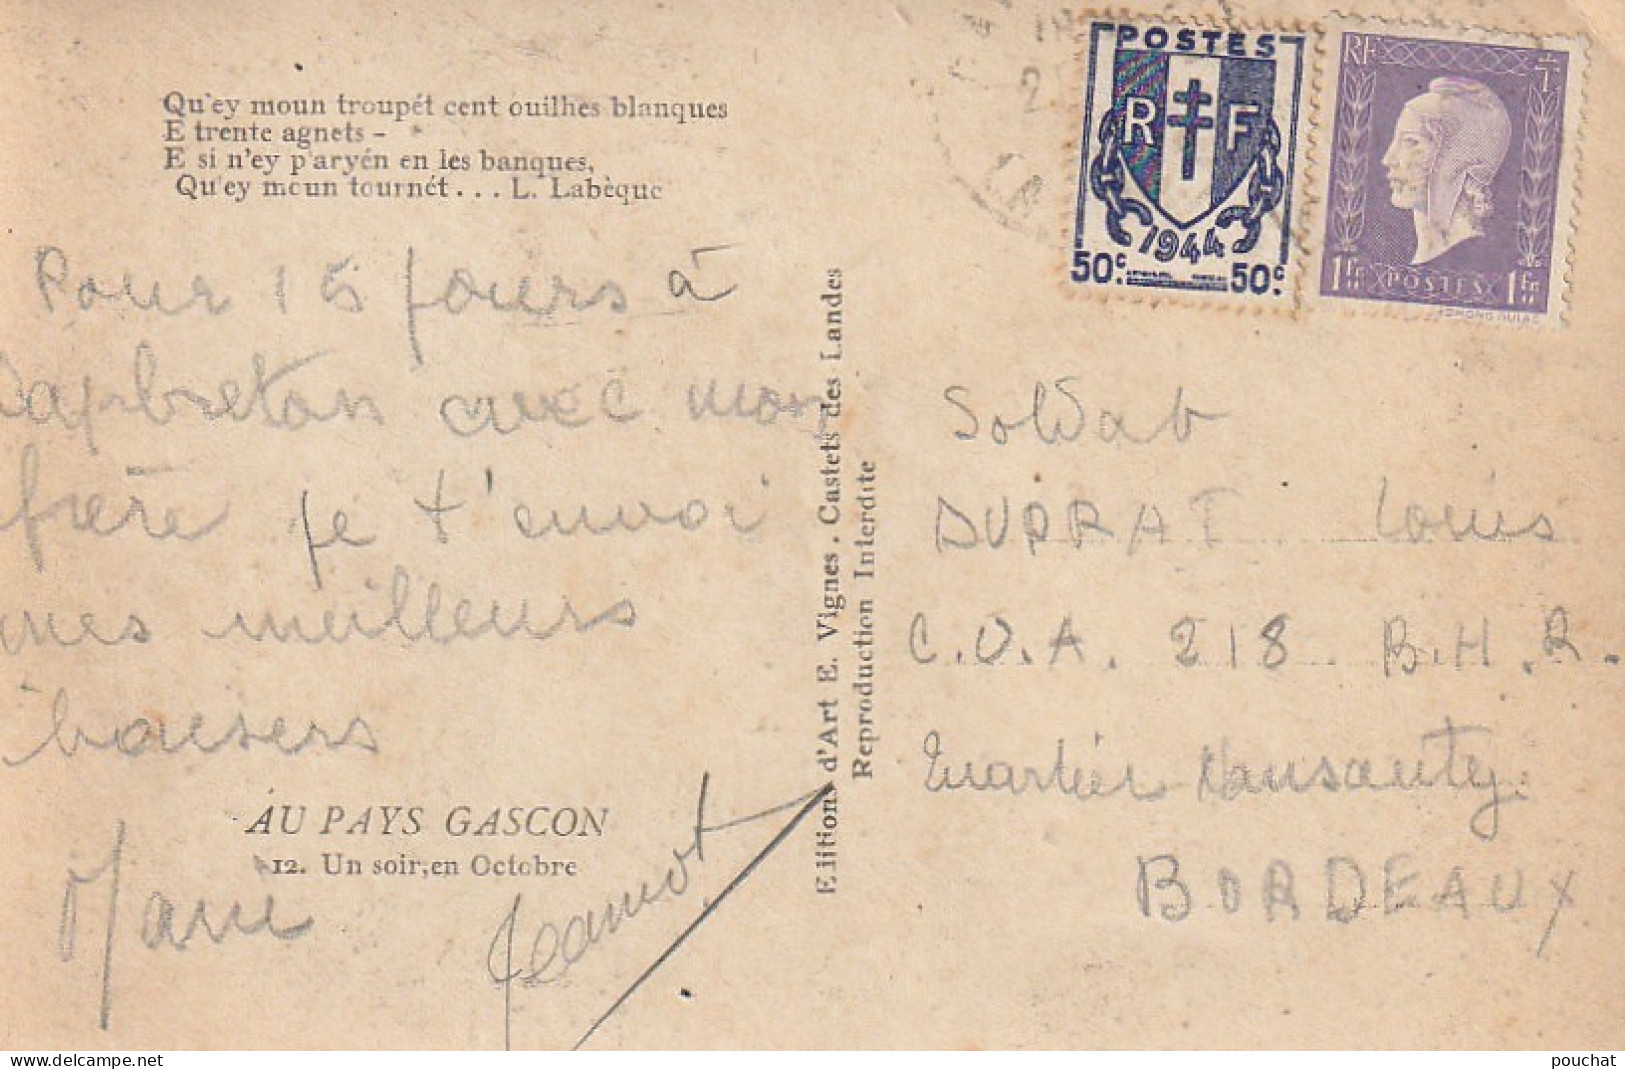 Qu'ey moun troupét cent ouilhes blanques
E trente agnets -
E si n'ey p'aryén en les banques,
Qu'ey moun tournét... L. Labèque
Pour 15 jours à
Capbreton avec mon
frère je t'envoi
mes meilleurs
baisers
AU PAYS GASCON
12. Un soir, en Octobre
Marie
Jeannot
Editions d'Art E. Vignes. Castets des Landes
Reproduction Interdite
POSTES
RF
1944
50c. 50c.
RF
1Fr POSTES 1Fr
EDMOND DULAC
Soldat
DUPRAT Louis
C.O.A. 218 B.H.R.
Quartier Nansouty
BORDEAUX
pouchat